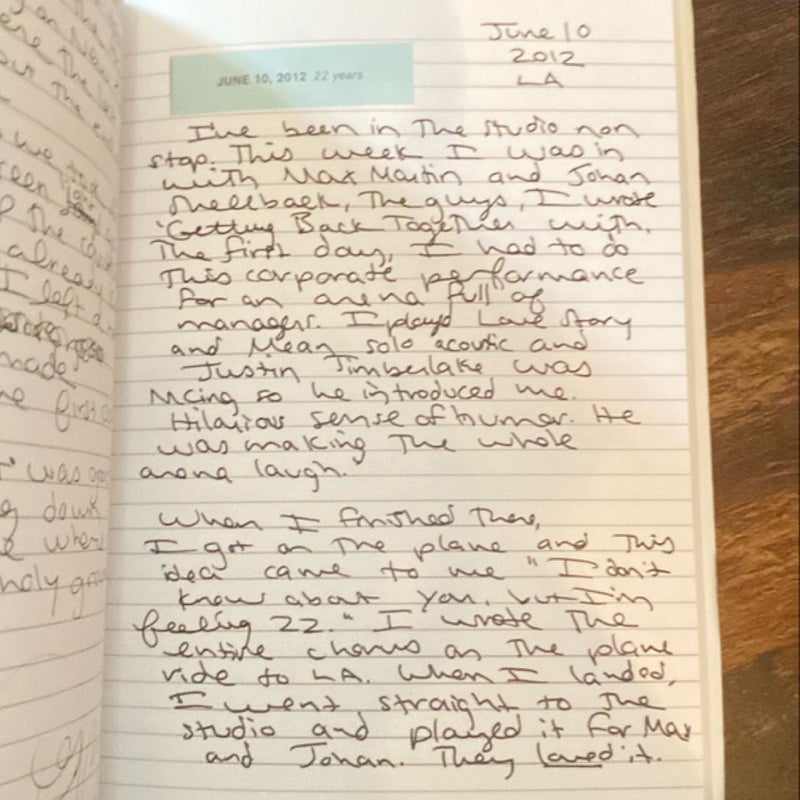 June 10
2012
LA
JUNE 10, 2012 22 years
I've been in The studio non
stop. This week I was in
with Max Martin and Johan
Shellback, The guys, I wrote
'Getting Back Together with.
The first day, I had to do
This corporate performance
for an arena full of
managers. I played Love Story
and Mean solo acoustic and
Justin Timberlake was
MCing so he introduced me.
Hilarious sense of humor. He
was making The whole
arena laugh.
When I finished There,
I got on The plane and This
idea came to me "I don't
know about you, but I'm
feeling 22." I wrote The
entire chorus on The plane
ride to LA. When I landed,
I went straight to The
studio and played it for Max
and Johan. They loved it.
already
I left
made
first
was
down
where
holy